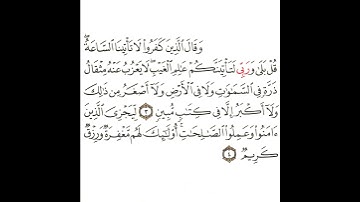 وَقَالَ ٱلَّذِينَ كَفَرُوا۟ لَا تَأْتِينَا ٱلسَّاعَةُ ۖ
قُلْ بَلَىٰ وَرَبِّى لَتَأْتِيَنَّكُمْ عَٰلِمِ ٱلْغَيْبِ ۖ لَا يَعْزُبُ عَنْهُ مِثْقَالُ
ذَرَّةٍ فِى ٱلسَّمَٰوَٰتِ وَلَا فِى ٱلْأَرْضِ وَلَآ أَصْغَرُ مِن ذَٰلِكَ
وَلَآ أَكْبَرُ إِلَّا فِى كِتَٰبٍ مُّبِينٍ ٣ لِّيَجْزِىَ ٱلَّذِينَ
ءَامَنُوا۟ وَعَمِلُوا۟ ٱلصَّٰلِحَٰتِ ۚ أُو۟لَٰٓئِكَ لَهُم مَّغْفِرَةٌ وَرِزْقٌ
كَرِيمٌ ٤